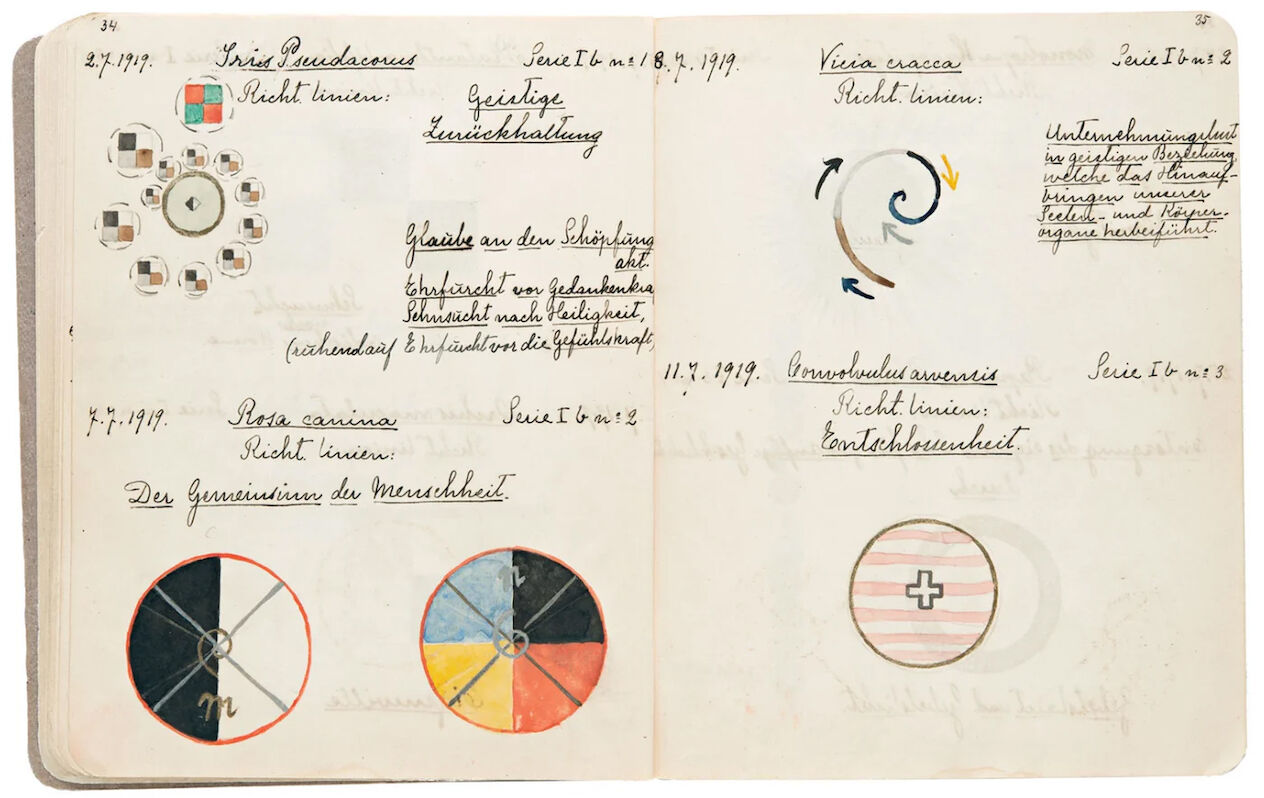 34
2.7.1919. Irris Pseudacorus Serie I b nº 1
Richt. linien: Geistige
Zurückhaltung
Glaube an den Schöpfung
akt.
Ehrfurcht vor Gedankenkra
Sehnsucht nach Heiligkeit,
(ruhend auf Ehrfurcht vor die Gefühlskraft,
7.7.1919. Rosa canina Serie I b nº 2
Richt. linien:
Der Gemeinsinn der Menschheit.
m
n
35
8.7.1919. Vicia cracca Serie I b nº 2
Richt. linien:
Unternehmungslust
in geistigen Beziehung,
welche das Hinauf-
bringen unserer
Seelen- und Körper-
organe herbeiführt.
11.7.1919. Convolvulus arvensis Serie I b nº 3
Richt. linien:
Entschlossenheit.